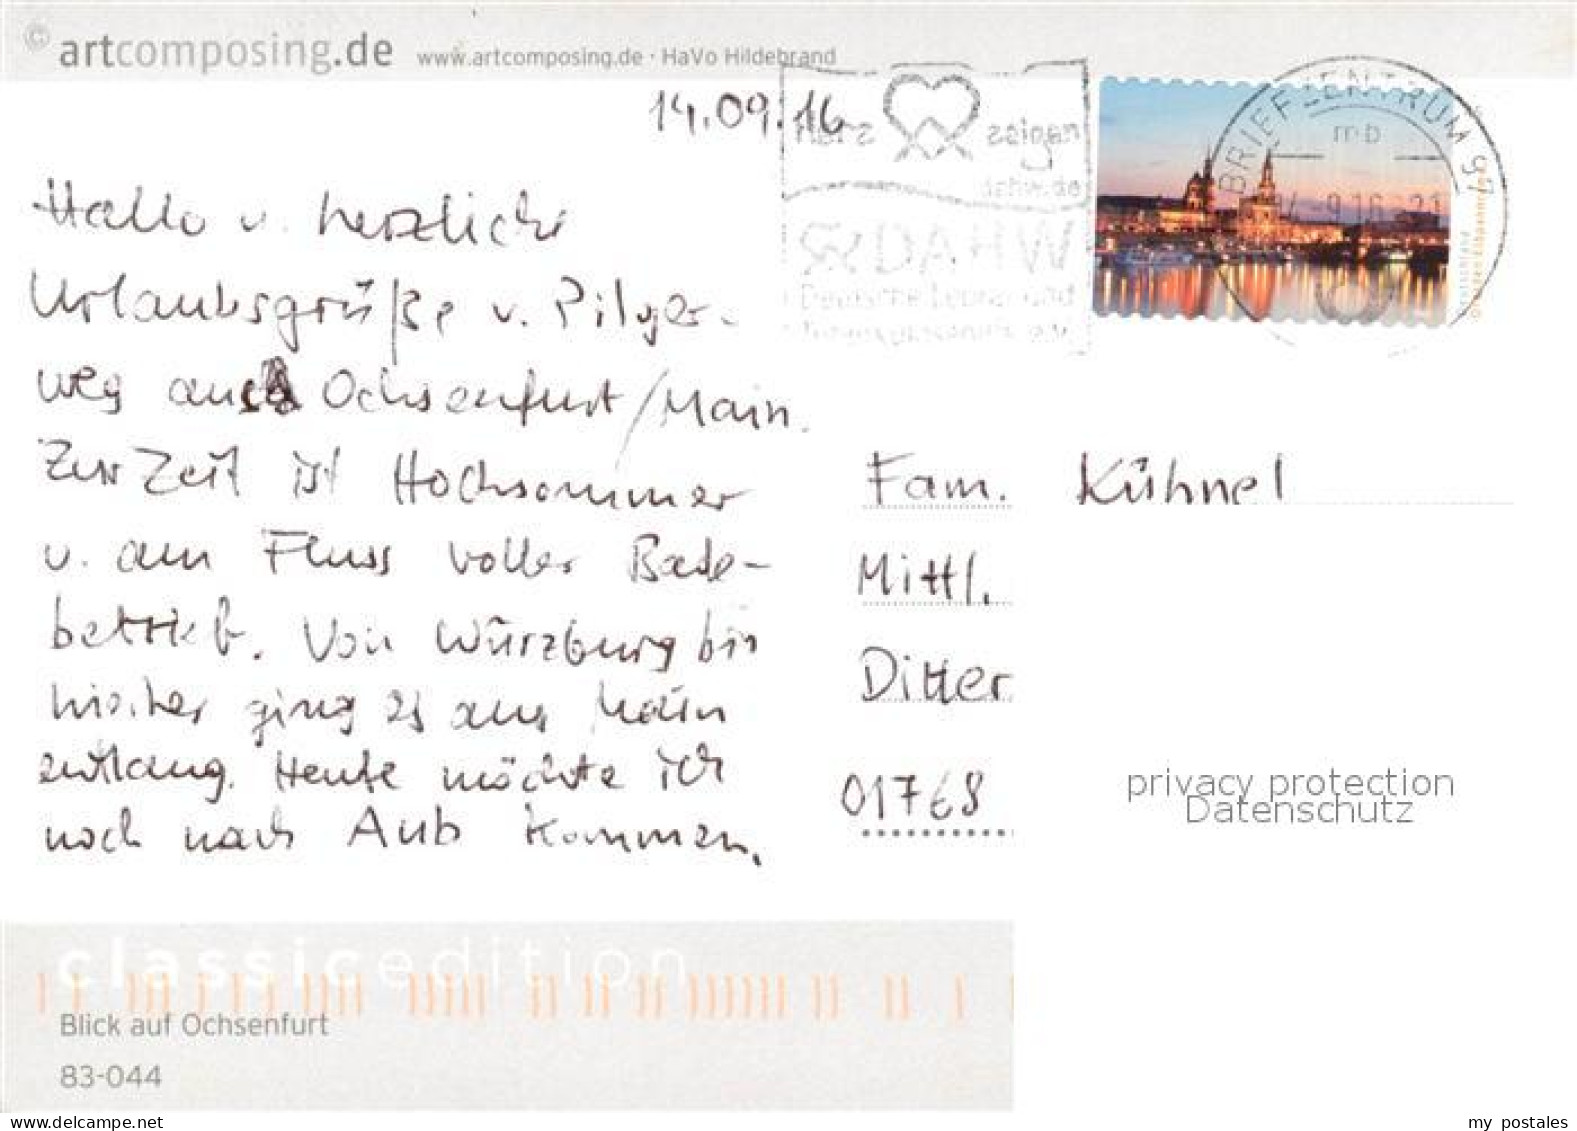 © artcomposing.de www.artcomposing.de · HaVo Hildebrand
14.09.16
Herz zeigen
dahw.de
DAHW
Deutsche Lepra- und
e.V.
BRIEFZENTRUM 97
mb
9.16-21
Deutschland
Hallo u. herzliche
Urlaubsgrüße v. Pilger-
weg aus Ochsenfurt/Main.
Zur Zeit ist Hochsommer
u. am Fluss voller Bade-
betrieb. Von Würzburg bis
hierher ging es am Main
entlang. Heute möchte ich
noch nach Aub kommen.
Fam. Kühnel
Mittl.
Ditter
01768
privacy protection
Datenschutz
classicedition
Blick auf Ochsenfurt
83-044
www.delcampe.net
my postales